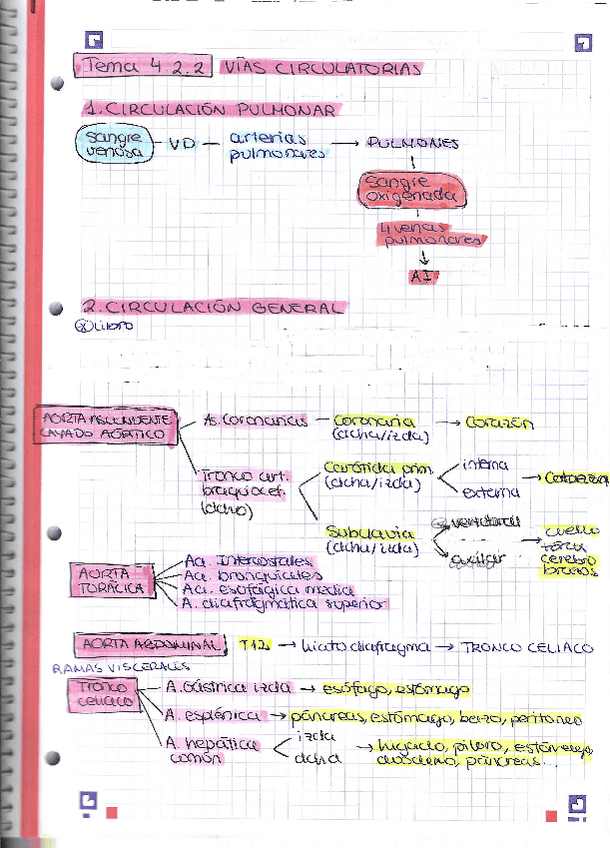 Tema 4.2.2 VÍAS CIRCULATORIAS
1. CIRCULACIÓN PULMONAR
sangre venosa — VD — arterias pulmonares → PULMONES
sangre oxigenada
4 venas pulmonares
↓
AI
2. CIRCULACIÓN GENERAL
libro
AORTA ASCENDENTE
CAYADO AÓRTICO
As. Coronarias — Coronaria (dcha/izda) → Corazón
Tronco art. braquiocef. (dcho)
Carótida prim. (dcha/izda)
interna
externa
→ Cabeza
Subclavia (dcha/izda)
vertebral
axilar
→ cuello
tórax
cerebro
brazos
AORTA TORÁCICA
Aa. Intercostales
Aa. bronquiales
Aa. esofágica media
A. diafragmática superior
AORTA ABDOMINAL T12 → hiato diafragma → TRONCO CELIACO
RAMAS VISCERALES
Tronco celiaco
A. Gástrica izda → esófago, estómago
A. esplénica → páncreas, estómago, bazo, peritoneo
A. hepática común
izda
dcha
→ hígado, píloro, estómago,
duodeno, páncreas...